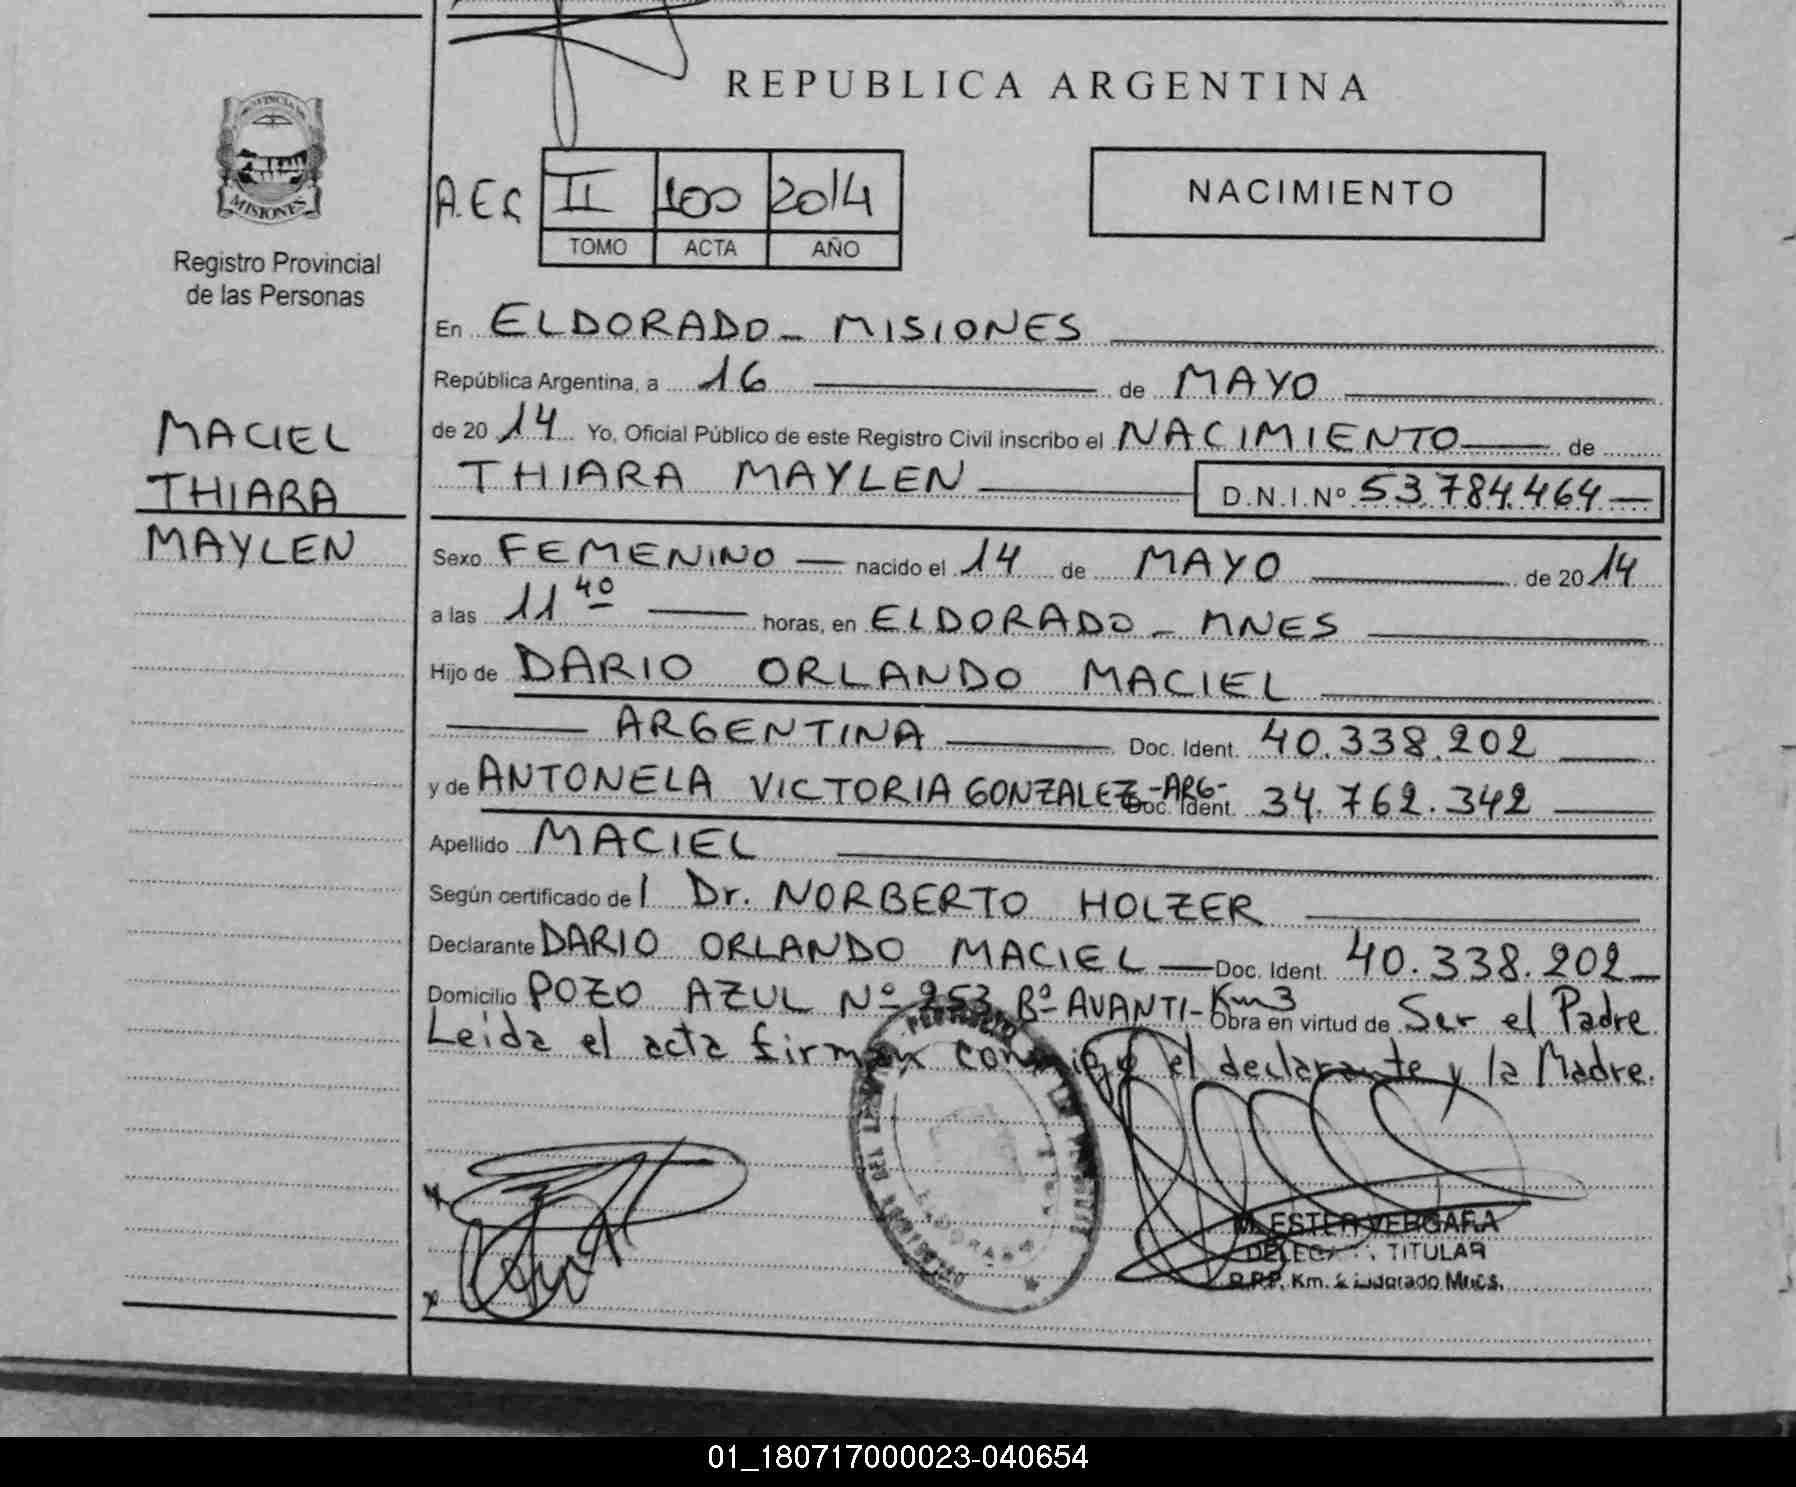 REPUBLICA ARGENTINA
PROVINCIA DE
MISIONES
Registro Provincial
de las Personas
MACIEL
THIARA
MAYLEN
II 100 2014
TOMO ACTA AÑO
NACIMIENTO
En ELDORADO - MISIONES
República Argentina, a 16 de MAYO
de 2014 Yo, Oficial Público de este Registro Civil inscribo el NACIMIENTO de
THIARA MAYLEN D.N.I.Nº 53.784.464
Sexo FEMENINO nacido el 14 de MAYO de 2014
a las 11 40 horas, en ELDORADO - MNES
Hijo de DARIO ORLANDO MACIEL
ARGENTINA Doc. Ident. 40.338.202
y de ANTONELA VICTORIA GONZALEZ -ARG- Doc. Ident. 34.762.342
Apellido MACIEL
Según certificado del Dr. NORBERTO HOLZER
Declarante DARIO ORLANDO MACIEL Doc. Ident. 40.338.202
Domicilio POZO AZUL Nº 253 Bº AVANTI - Km 3 Obra en virtud de Ser el Padre
Leida el acta firman conmigo el declarante y la Madre.
ELDORADO
M. ESTER VERGARA
TITULAR
R.P.P. Km. Eldorado Mnes.
01_180717000023-040654